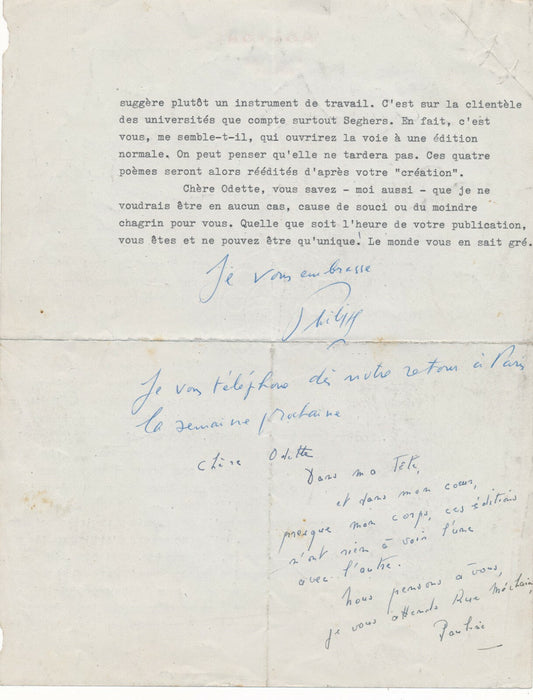 suggère plutôt un instrument de travail. C'est sur la clientèle
des universités que compte surtout Seghers. En fait, c'est
vous, me semble-t-il, qui ouvrirez la voie à une édition
normale. On peut penser qu'elle ne tardera pas. Ces quatre
poèmes seront alors réédités d'après votre "création".
Chère Odette, vous savez - moi aussi - que je ne
voudrais être en aucun cas, cause de souci ou du moindre
chagrin pour vous. Quelle que soit l'heure de votre publication,
vous êtes et ne pouvez être qu'unique! Le monde vous en sait gré.
Je vous embrasse
Je vous téléphone dès notre retour à Paris
la semaine prochaine
Chère Odette
Dans ma tête,
et dans mon cœur,
presque mon corps, ces éditions
n'ont rien à voir l'une
avec l'autre.
Nous pensons à vous,
je vous attends Rue Méchain,
Pauline